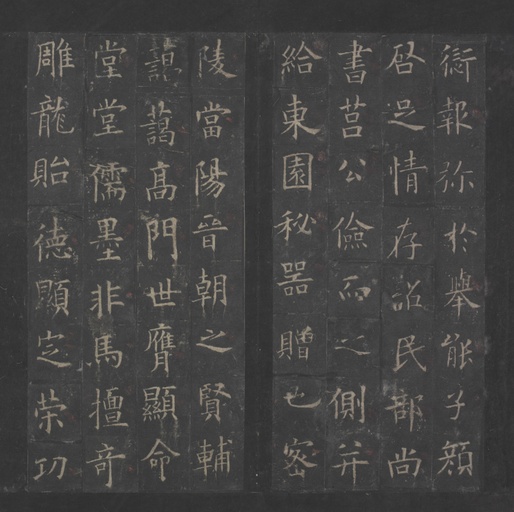 衍報沵於舉能子顏
啓足情存詔民部尚
書莒公儉而之側并
給東園秘器贈也密
陵當陽晉朝之賢輔
諤藹高門世膺顯命
堂堂儒墨非馬擅奇
雕龍貽德顯定荣功